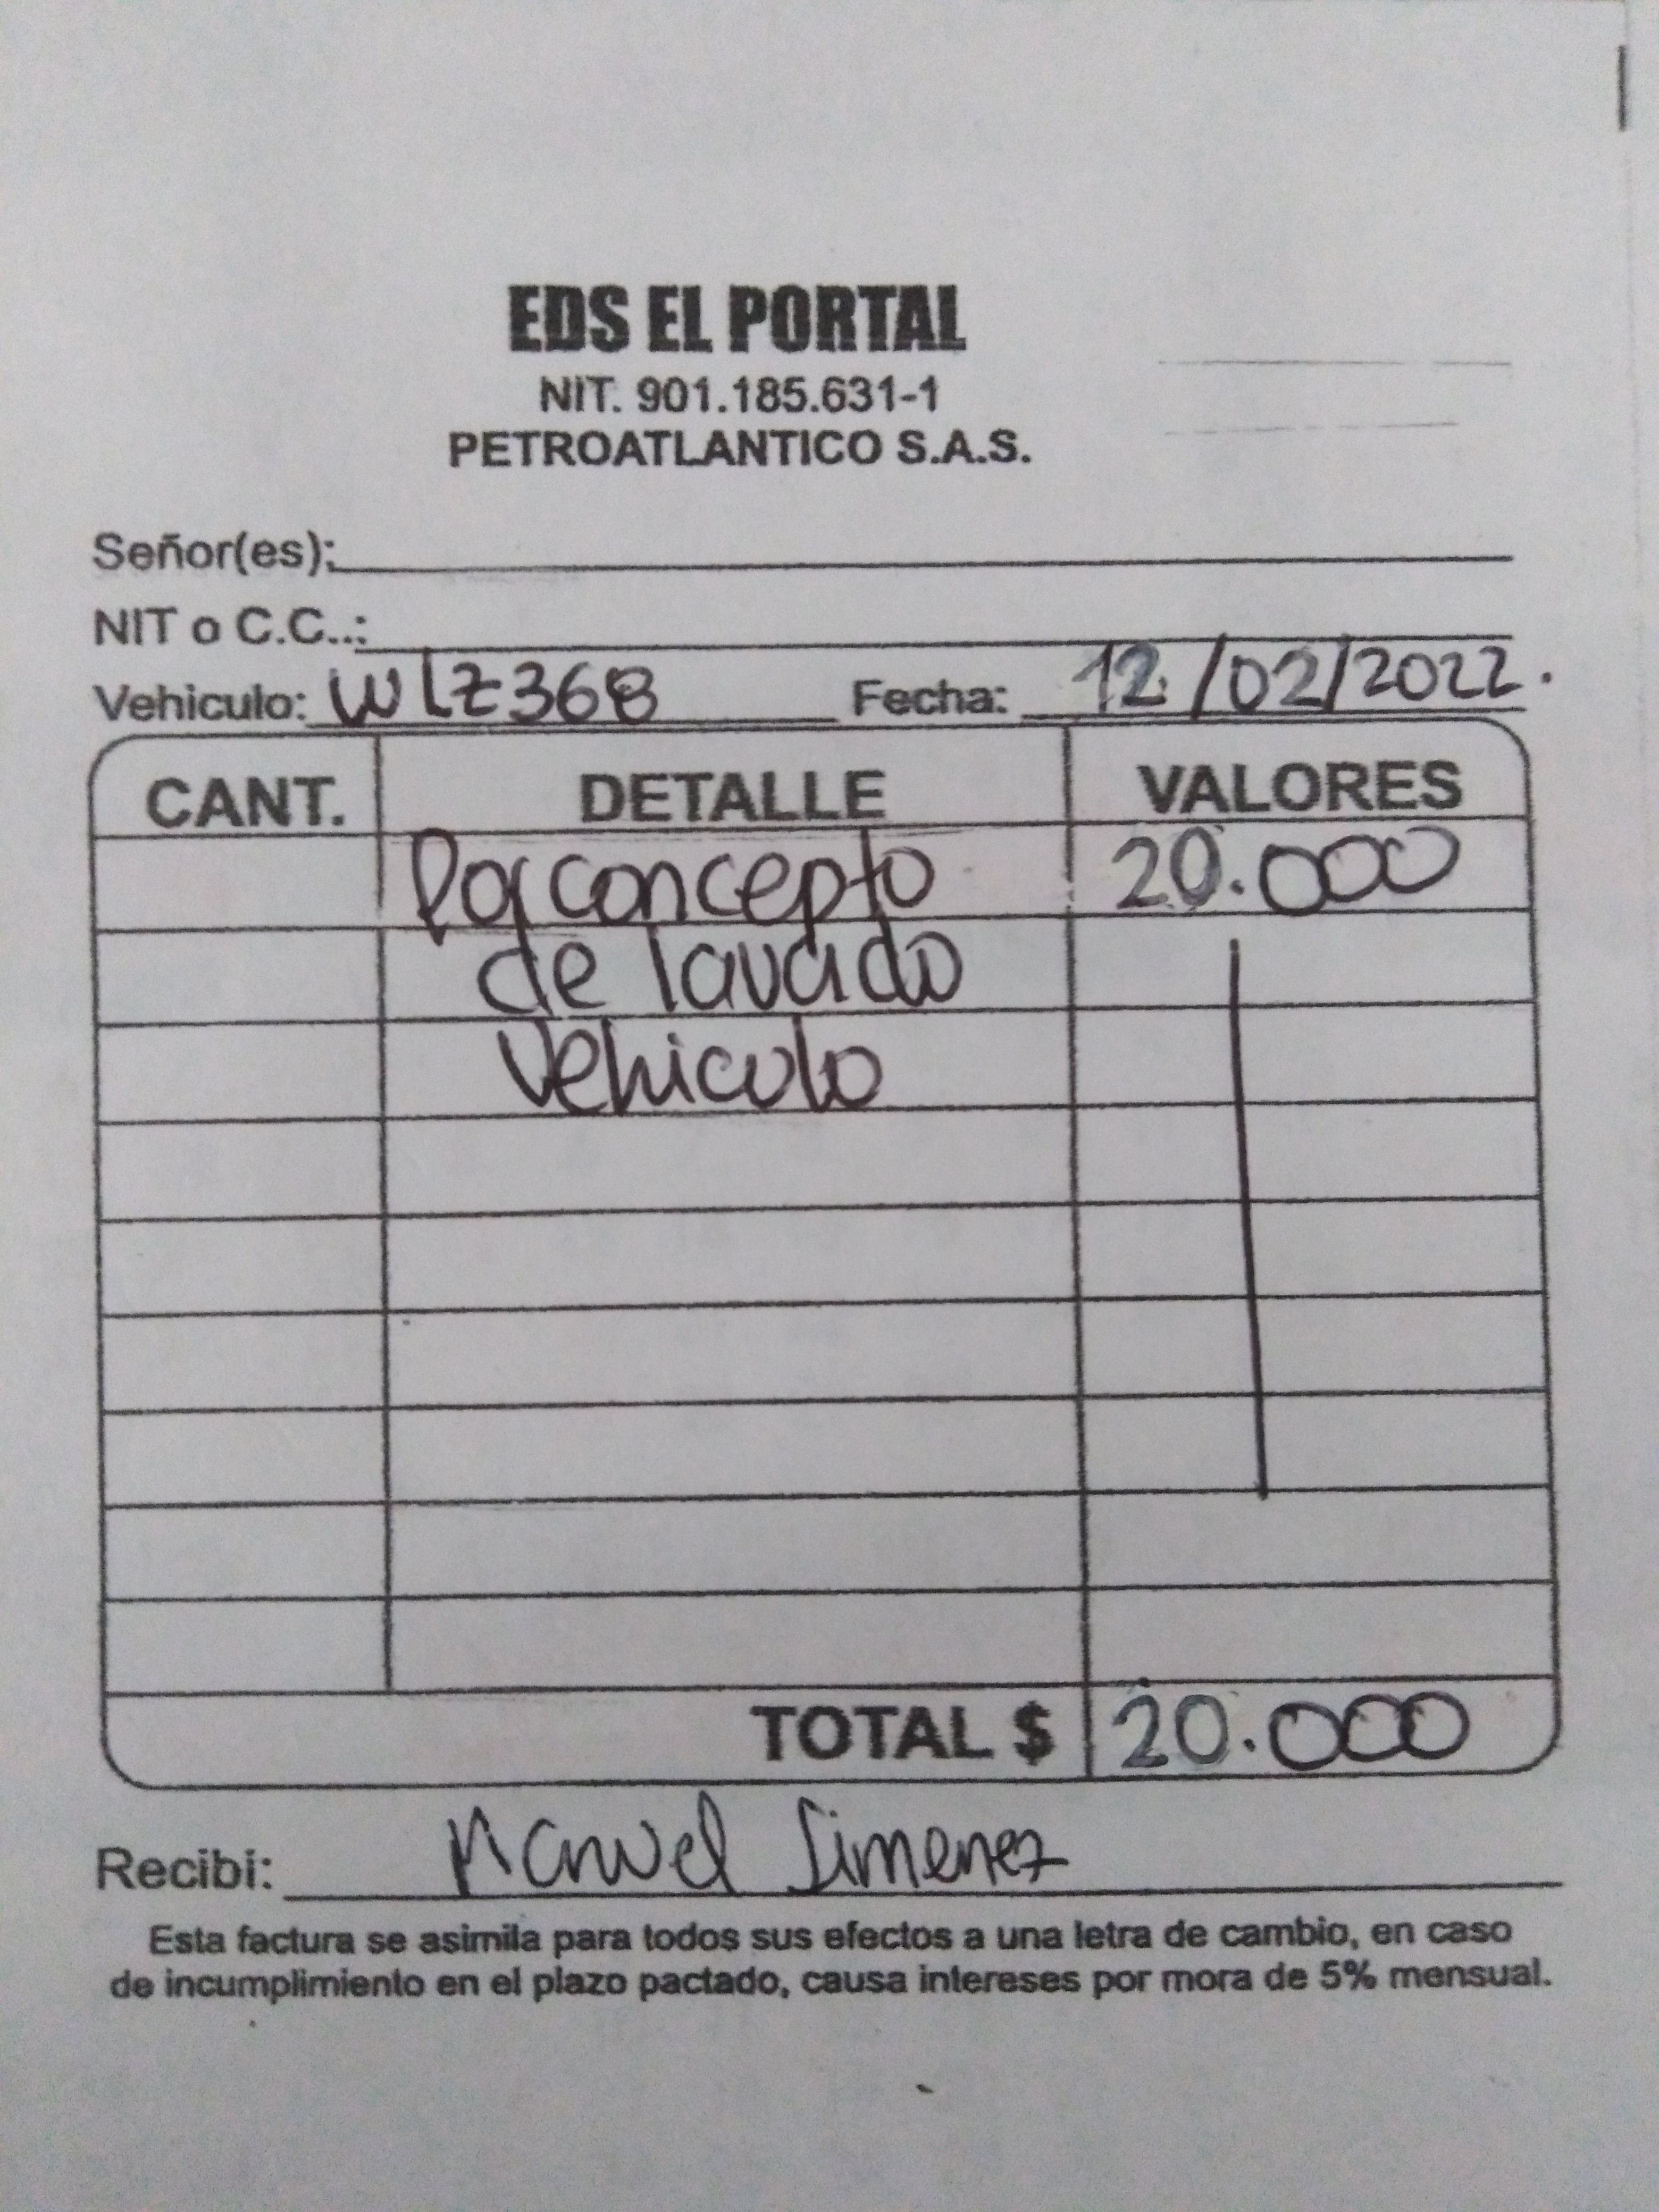 EDS EL PORTAL
NIT. 901.185.631-1
PETROATLANTICO S.A.S.
Señor(es):
NIT o C.C..:
Vehiculo: WLZ368 Fecha: 12/02/2022.
CANT. DETALLE VALORES
Por concepto 20.000
de lavado
vehiculo
TOTAL $ 20.000
Recibi: Manuel Jimenez
Esta factura se asimila para todos sus efectos a una letra de cambio, en caso
de incumplimiento en el plazo pactado, causa intereses por mora de 5% mensual.